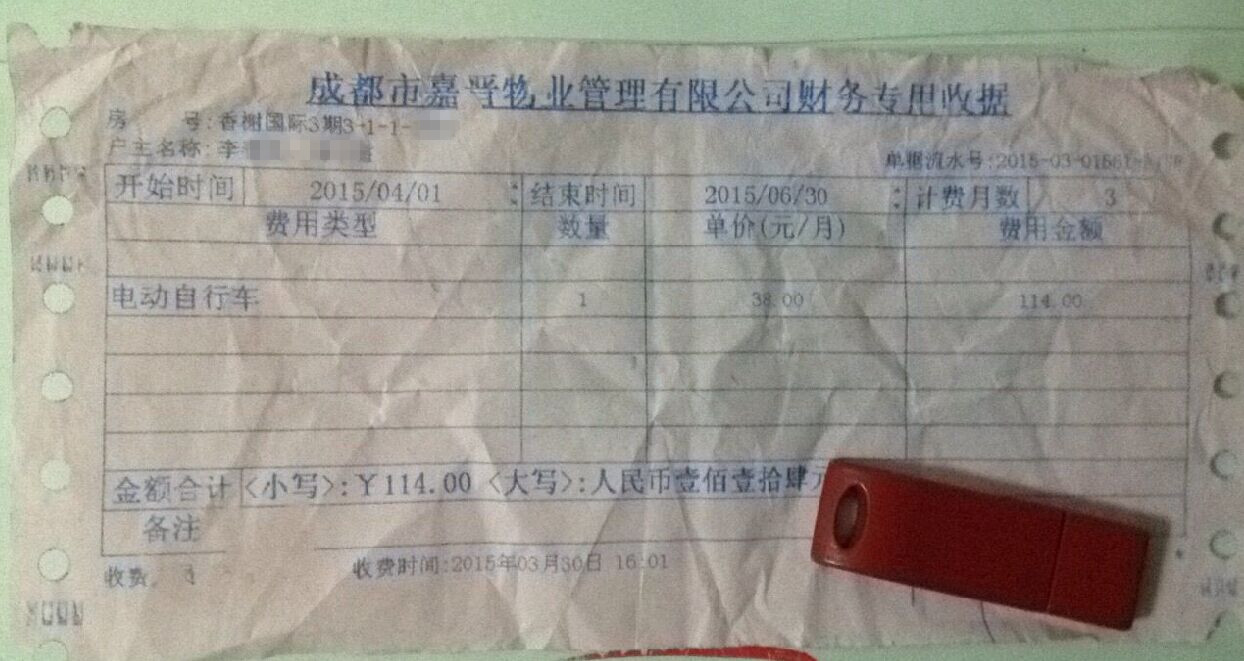 成都市嘉晋物业管理有限公司财务专用收据
房 号:香榭国际3期3-1-1-
户主名称:李
单据流水号:2015-03-01561-
开始时间 2015/04/01 : 结束时间 2015/06/30 : 计费月数 3
费用类型 数量 单价(元/月) 费用金额
电动自行车 1 38.00 114.00
金额合计 <小写>:¥114.00 <大写>:人民币壹佰壹拾肆元
备注
收费 收费时间:2015年03月30日 16:01